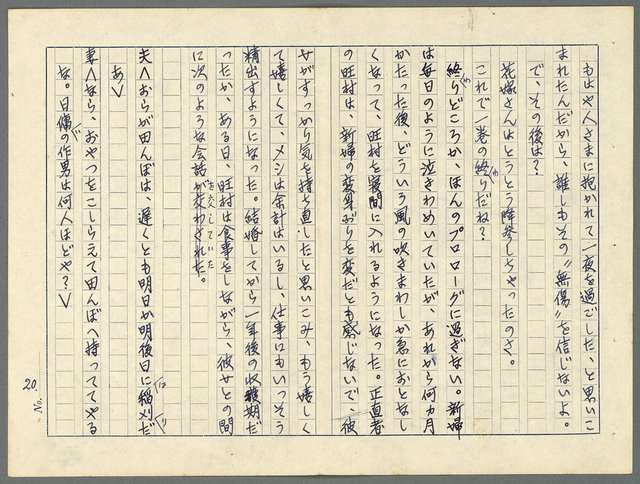 もはや人さまに抱かれて一夜を過ごした、と思いこ
まれたんだから、誰しもその〝無傷〟を信じないよ。
で、その後は?
花嫁さんはとうとう降参しちゃったのさ。
これで一巻の終りだね?
終りどころか、ほんのプロローグに過ぎない。新婦
は毎日のように泣きわめいていたが、あれから何ヵ月
かたった後、どういう風の吹きまわしか急におとなし
くなって、旺村を寝間に入れるようになった。正直者
の旺村は、新婦の変身ぶりを変だとも感じないで、彼
女がすっかり気を持ち直したと思いこみ、もう嬉しく
て嬉しくて、メシは余計はいるし、仕事にもいっそう
精出すようになった。結婚してから一年後の収穫期だ
ったか、ある日、旺村は食事をしながら、彼女との間
に次のような会話を交していた
が交わされた。
夫〈おらが田んぼは、遅くとも明日か明後日に稲刈りだ
あ〉
妻〈なら、おやつをこしらえて田んぼへ持っててやる
な。日傭の作男は何人ほどや?〉
20
No.